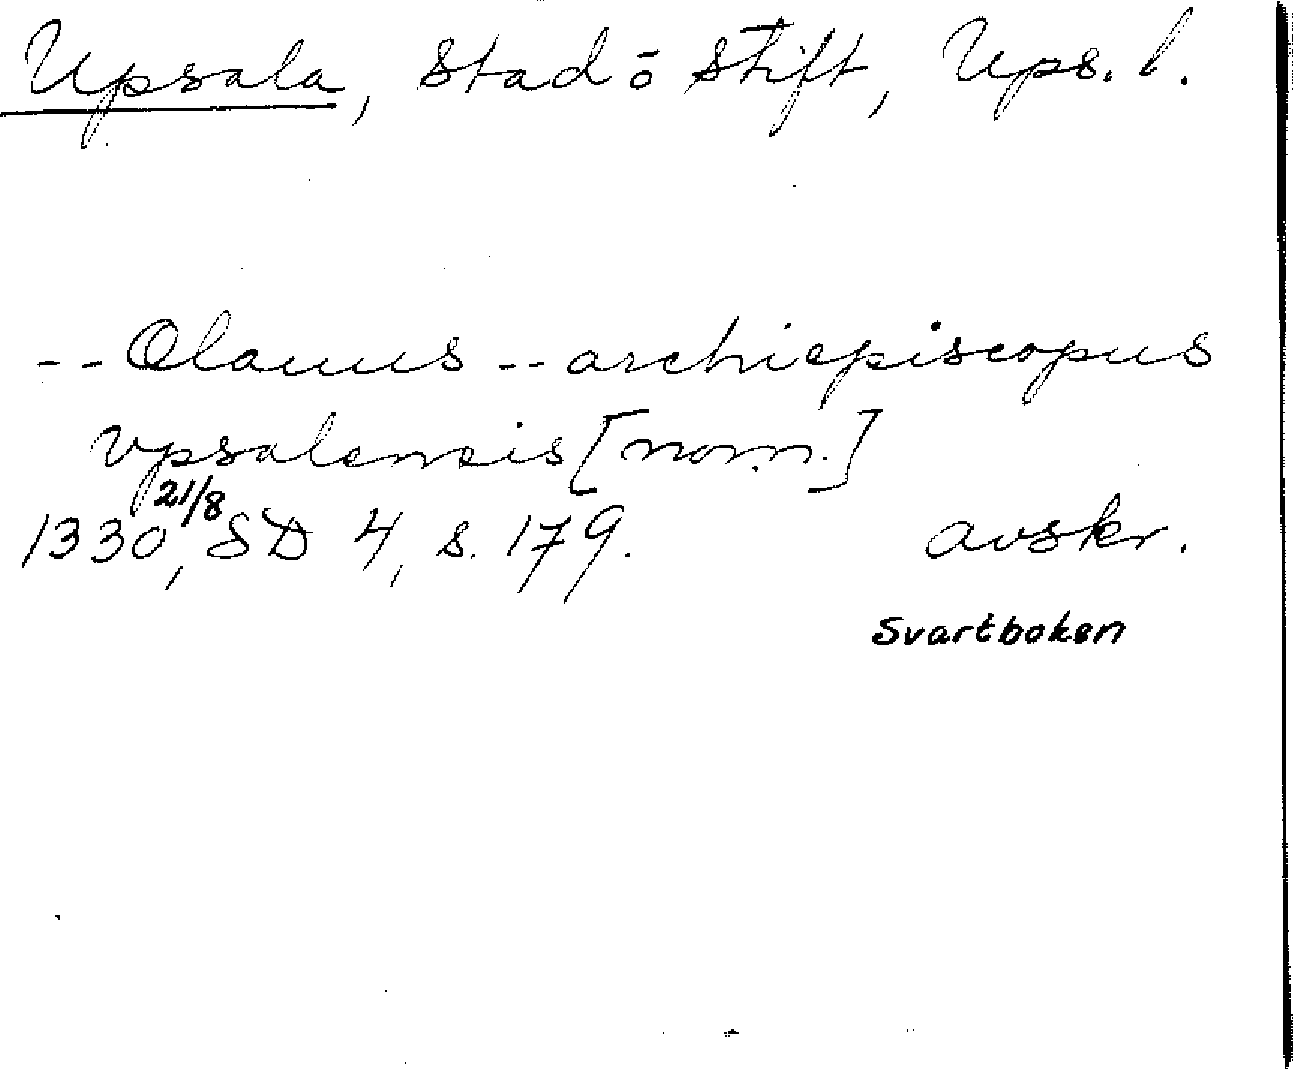 Upsala, stad o stift, Ups. l.
-- Olauus -- archiepiscopus
vpsalensis [nom.]
1330 21/8, SD 4, s. 179. avskr.
Svartboken